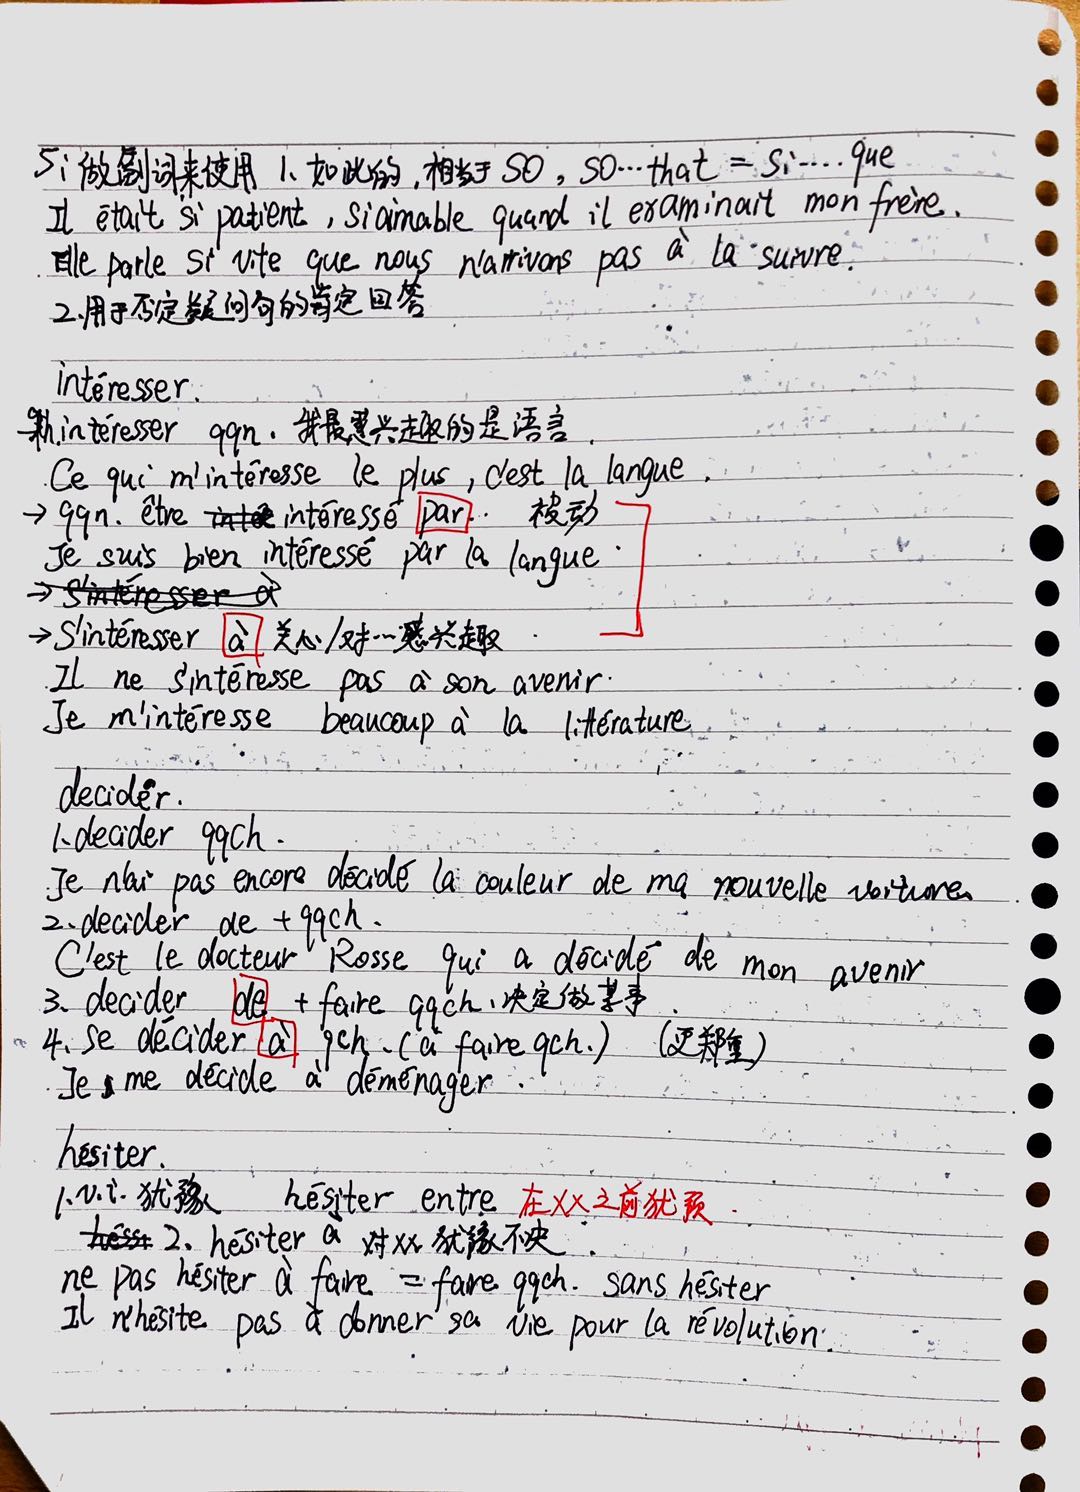 Si 做副词来使用 1. 如此的, 相当于 so, so...that = si....que
Il était si patient, si aimable quand il examinait mon frère.
Elle parle si vite que nous n'arrivons pas à la suivre.
2.用于否定疑问句的肯定回答
intéresser.
intéresser qqn. 我最感兴趣的是语言.
Ce qui m'intéresse le plus, c'est la langue.
→ qqn. être intéressé par... 被动
Je suis bien intéressé par la langue.
→ S'intéresser à
→ S'intéresser à 关心/对...感兴趣.
Il ne s'intéresse pas à son avenir.
Je m'intéresse beaucoup à la littérature
decider.
1.decider qqch.
Je n'ai pas encore décidé la couleur de ma nouvelle voiture.
2.decider de + qqch.
C'est le docteur Rosse qui a décidé de mon avenir
3. decider de + faire qqch. 决定做某事.
4. se décider à qch. (à faire qch.) (更郑重)
Je me décide à déménager.
hésiter.
1.v.i. 犹豫 hésiter entre 在xx之前犹预.
2. hésiter à 对xx犹豫不决.
ne pas hésiter à faire = faire qqch. sans hésiter
Il n'hésite pas à donner sa vie pour la révolution.